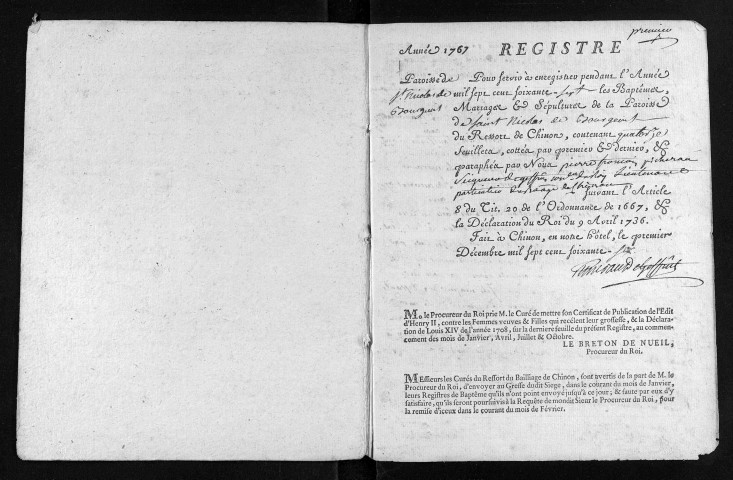 premier
Année 1767 REGISTRE
Paroisse de
St Nicolas de
Bourgueil
Pour servir à enregistrer pendant l'Année
mil sept cent soixante-sept les Baptêmes,
Mariages & Sépultures de la Paroisse
de Saint Nicolas de Bourgueil
du Ressort de Chinon, contenant quatorze
feuillets, cottés par premier & dernier, &
paraphés par Nous pierre françois
Seigneur de Lieutenant
particulier suivant l'Article
8 du Tit. 20 de l'Ordonnance de 1667, &
la Déclaration du Roi du 9 Avril 1736.
Fait à Chinon, en notre hôtel, le premier
Décembre mil sept cent soixante-six
M. le Procureur du Roi prie M. le Curé de mettre son Certificat de Publication de l'Edit
d'Henry II, contre les Femmes veuves & Filles qui recélent leur grossesse, & la Déclara-
tion de Louis XIV de l'année 1708, sur la derniere feuille du présent Registre, au commen-
cement des mois de Janvier, Avril, Juillet & Octobre.
LE BRETON DE NUEIL,
Procureur du Roi.
MEssieurs les Curés du Ressort du Bailliage de Chinon, sont avertis de la part de M. le
Procureur du Roi, d'envoyer au Greffe dudit Siege, dans le courant du mois de Janvier,
leurs Registres de Baptême qu'ils n'ont point envoyé jusqu'à ce jour; & faute par eux d'y
satisfaire, qu'ils seront poursuivis à la Requête de mondit Sieur le Procureur du Roi, pour
la remise d'iceux dans le courant du mois de Février.